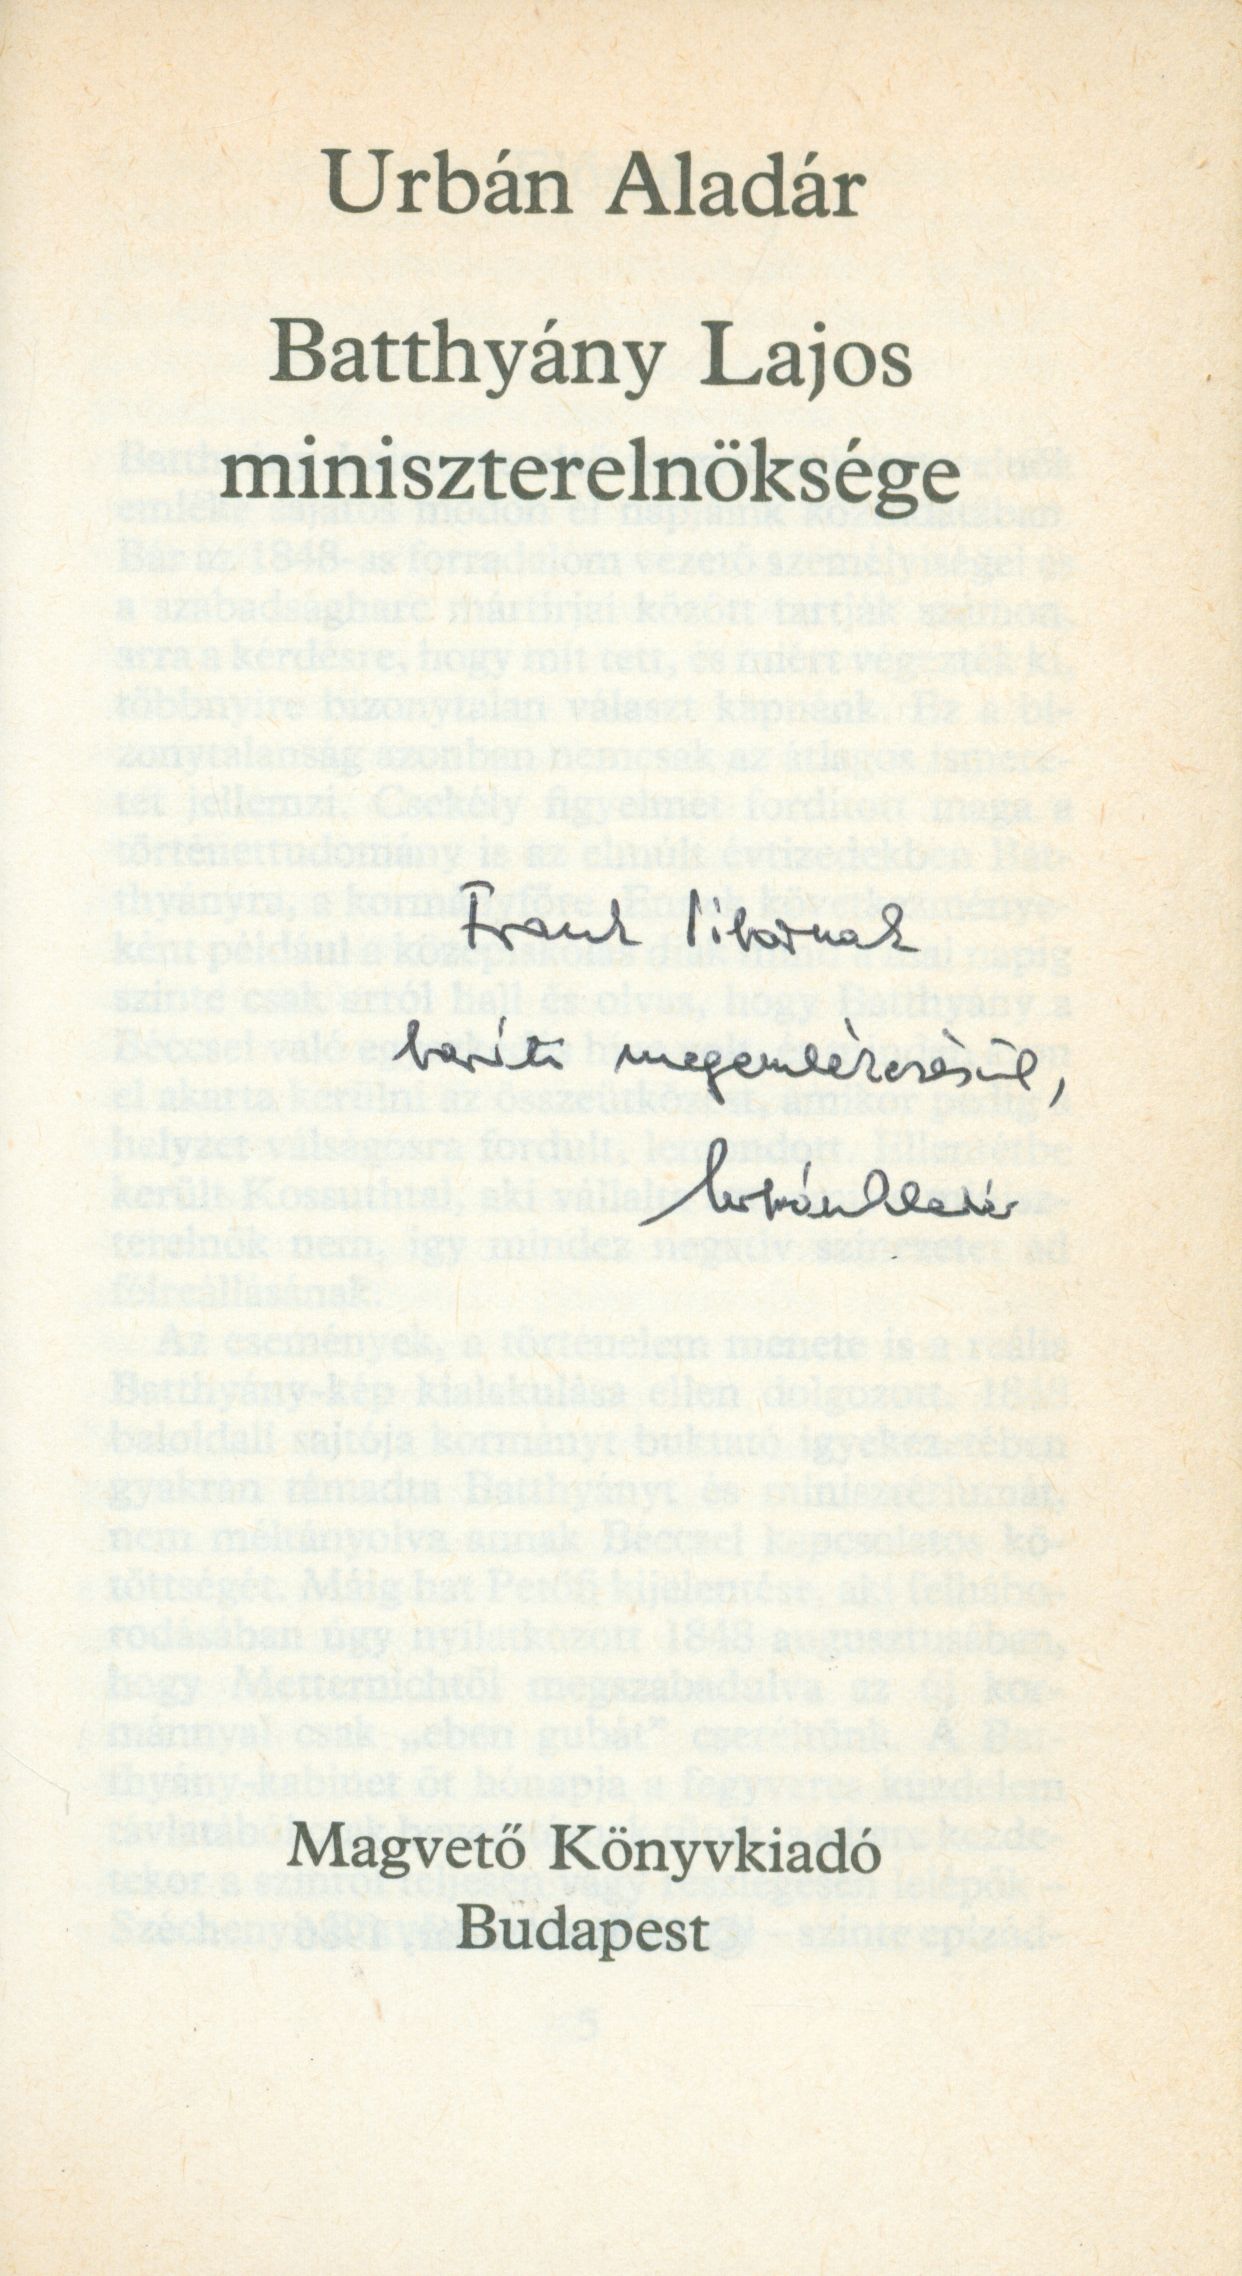 Urbán Aladár
Batthyány Lajos
miniszterelnöksége
Frank Tibornak
baráti megemlékezésül,
Urbán Aladár
Magvető Könyvkiadó
Budapest